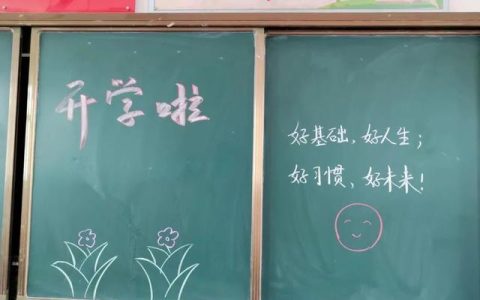 开学啦
好基础，好人生；
好习惯、好未来！